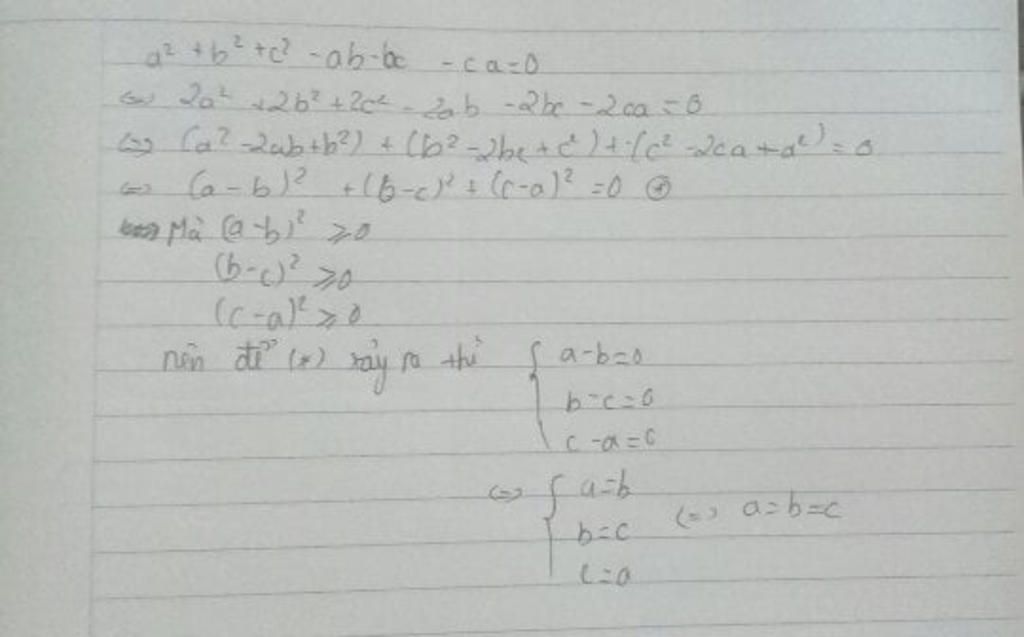 a² + b² + c² - ab - bc - ca = 0
⇔ 2a² + 2b² + 2c² - 2ab - 2bc - 2ca = 0
⇔ (a² - 2ab + b²) + (b² - 2bc + c²) + (c² - 2ca + a²) = 0
⇔ (a - b)² + (b - c)² + (c - a)² = 0 (*)
Mà (a - b)² ≥ 0
(b - c)² ≥ 0
(c - a)² ≥ 0
nên để (*) xảy ra thì { a - b = 0
b - c = 0
c - a = c
⇔ { a = b
b = c ⇔ a = b = c
c = a